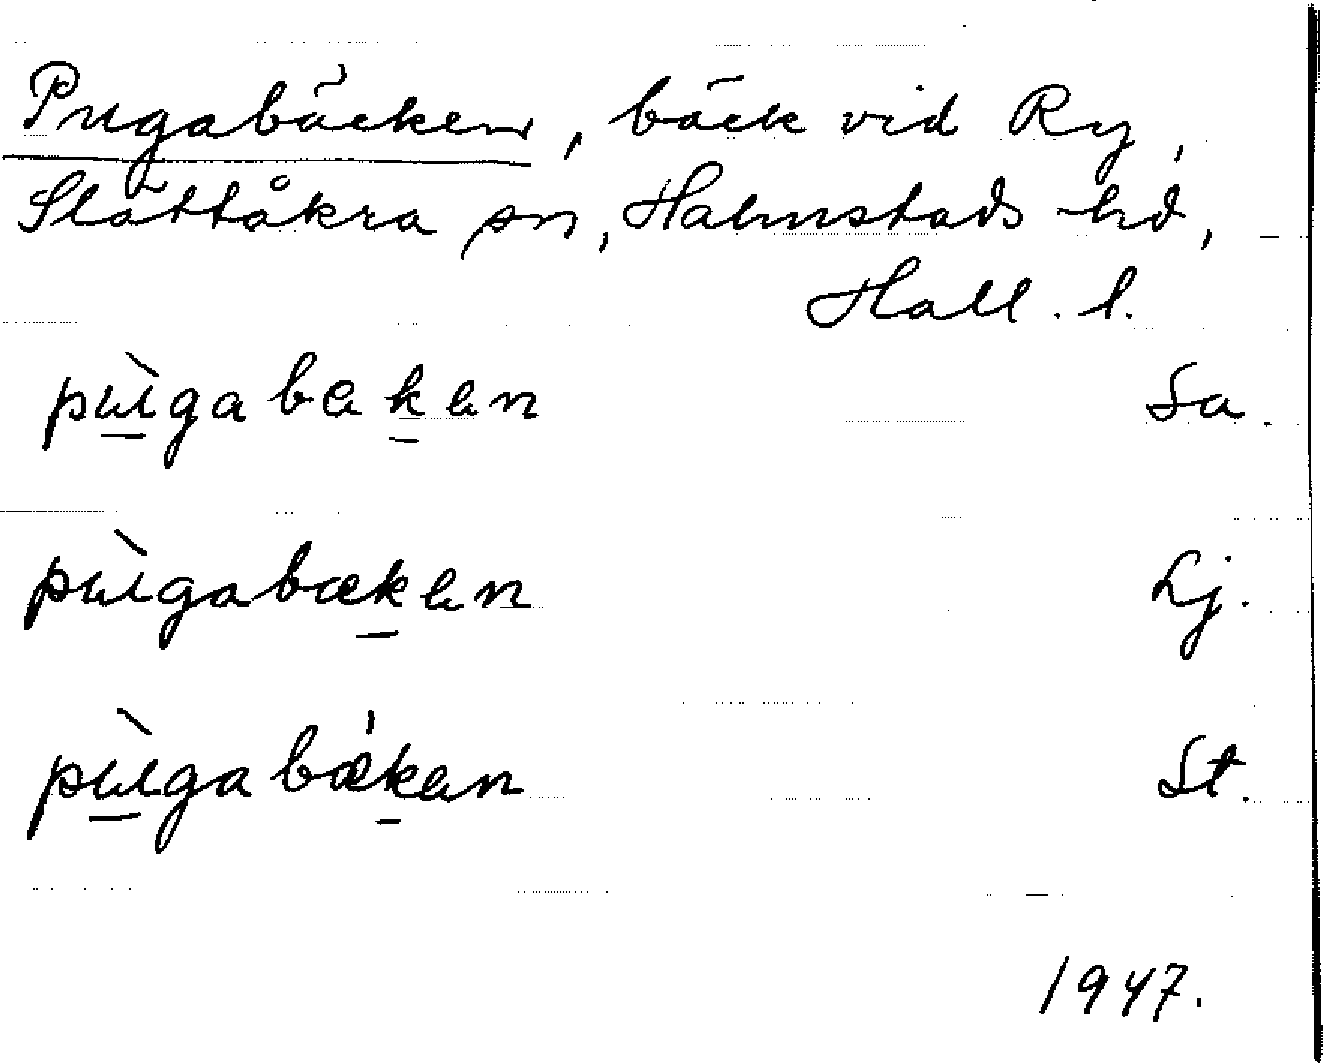 Pugabäcken, bäck vid Ry,
Slättåkra sn, Halmstads hd,
Hall. l.
pùgabakan Sa.
pùgabækan Lj.
pùgabǽkan St.
1947.